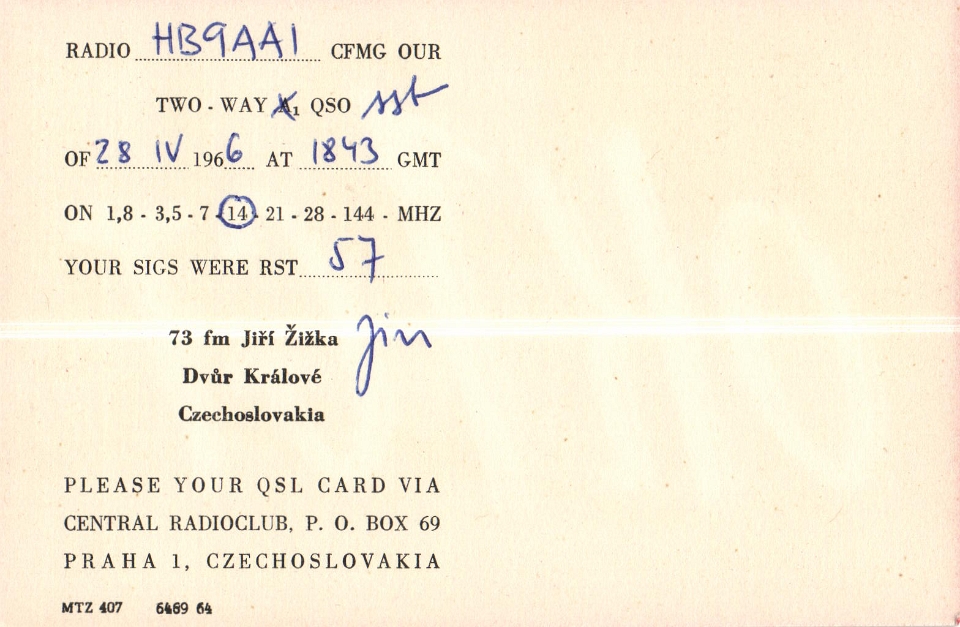 RADIO HB9AAI CFMG OUR
TWO - WAY A1 QSO sst
OF 28 IV 1966 AT 1843 GMT
ON 1,8 - 3,5 - 7 - 14 - 21 - 28 - 144 - MHZ
YOUR SIGS WERE RST 57
73 fm Jiří Žižka Jim
Dvůr Králové
Czechoslovakia
PLEASE YOUR QSL CARD VIA
CENTRAL RADIOCLUB, P. O. BOX 69
PRAHA 1, CZECHOSLOVAKIA
MTZ 407 6469 64